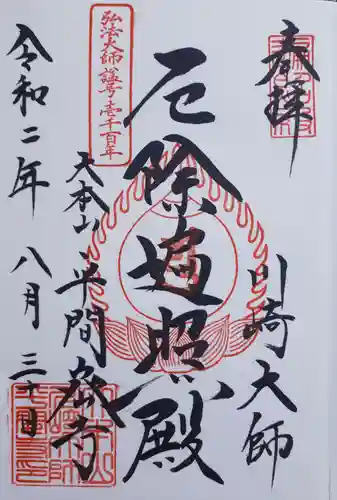 奉拝
川崎大師
厄除遍照殿
弘法大師諡号壱千百年
大本山平間寺
令和二年八月三十日